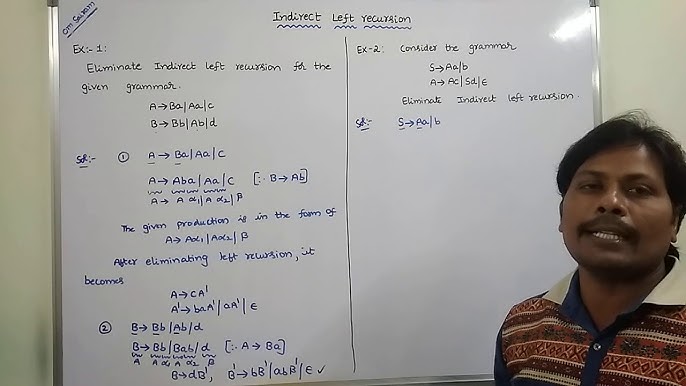 Om Sairam
Indirect Left recursion
Ex:- 1:
Eliminate Indirect left recursion for the
given grammar.
A→Ba|Aa|c
B→Bb|Ab|d
Sol:- ① A→Ba|Aa|c
A→Aba|Aa|c [∵ B→Ab]
A→ A α1|A α2|β
The given production is in the form of
A→Aα1|Aα2|β
After eliminating left recursion, it
becomes
A→cA'
A'→baA'|aA'|ϵ
② B→Bb|Ab|d
B→Bb|Bab|d [∵ A→Ba]
A A α1 A α2 β
B→dB', B'→bB'|abB'|ϵ ✓
Ex-2: Consider the grammar
S→Aa|b
A→Ac|Sd|ϵ
Eliminate Indirect left recursion.
Sol:- S→Aa|b